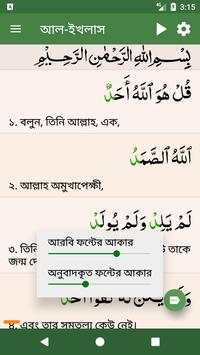 3:15
আল-ইখলাস
بِسْمِ اللَّهِ الرَّحْمَٰنِ الرَّحِيمِ
قُلْ هُوَ اللَّهُ أَحَدٌ
১. বলুন, তিনি আল্লাহ, এক,
اللَّهُ الصَّمَدُ
২. আল্লাহ অমুখাপেক্ষী,
لَمْ يَلِدْ وَلَمْ يُولَدْ
৩. তি
উ তাকে
জন্ম দে
আরবি ফন্টের আকার
অনুবাদকৃত ফন্টের আকার
৪. এবং তার সমতুল্য কেউ নেই।